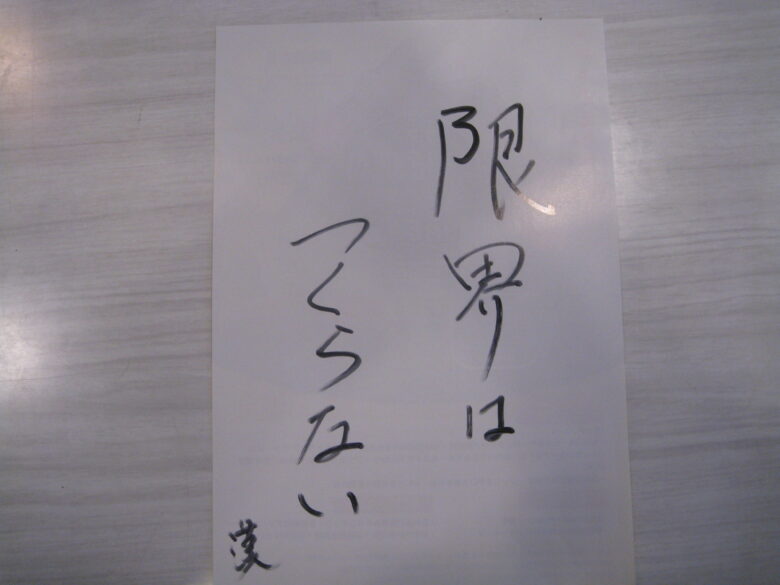 限界は
つくらない
漢